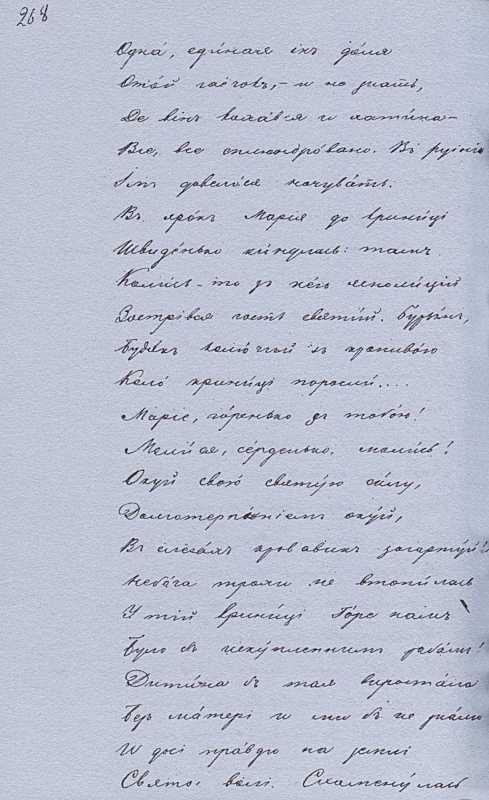 268
Одна́, еди́ная іхъ до́ля
Ото́й гаёгокъ, – и не знать,
Де він ховався и хати́на –
Все, все сплюндро́вано. Въ руіні
Імъ довело́ся ночува́ть.
Въ яро́къ Марія до крини́ці
Швиде́нько ки́нулась: тамъ
Коли́сь-то зъ не́ю ясноли́ций
Зострівся гость святи́й. Бурья́нъ,
Будя́къ колю́чий зъ кропиво́ю
Коло крини́ці поросли́....
Маріє, го́ренько зъ тобо́ю!
Моли́ся, се́рденько, моли́сь!
Оку́й свою́ святу́ю си́лу,
Долготерпі́ніемъ оку́й,
Въ слёза́хъ крова́вихъ загарту́й!
Небо́га трохи не втопи́лась
У тій крини́ці. Го́ре намъ
Було́ бъ искупленнимъ раба́мъ!
Дити́на бъ тая вироста́ла
Безъ ма́тері и ми бъ не зна́ли
И до́сі пра́вди на землі
Святоі волі. Схамену́лась